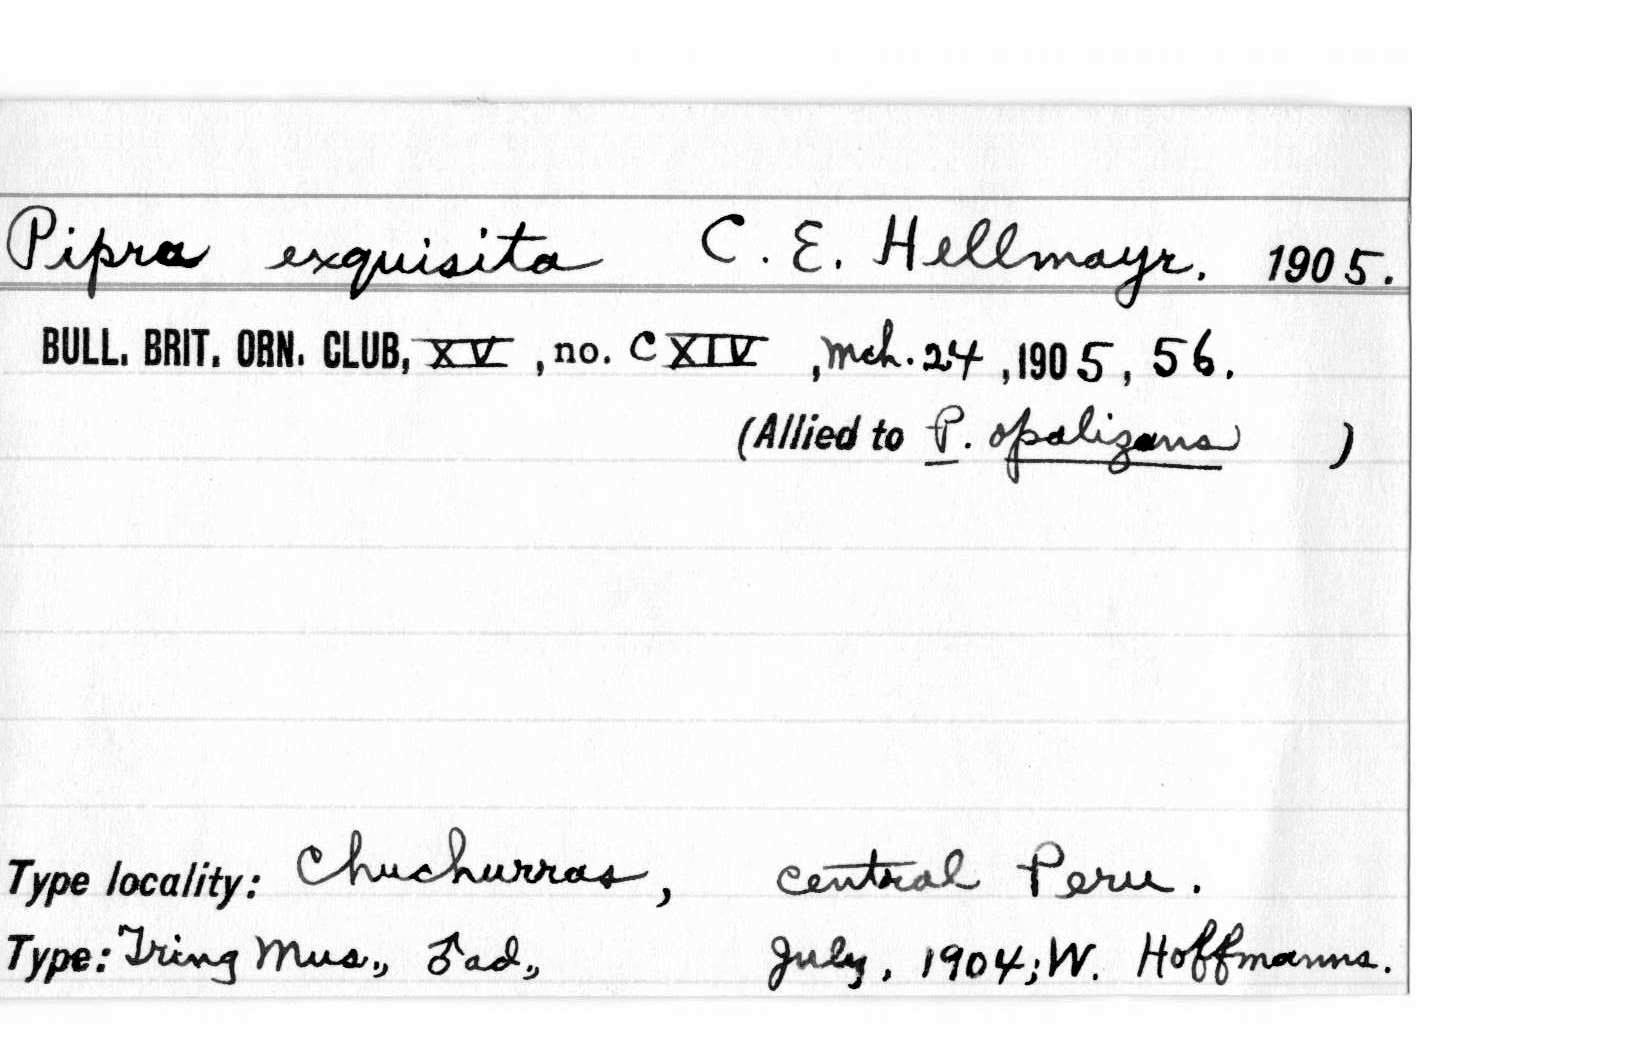 Pipra exquisita C. E. Hellmayr. 1905.
BULL. BRIT. ORN. CLUB, XV, no. CXIV, Mch. 24, 1905, 56.
(Allied to P. opalizans )
Type locality: Chuchurras, central Peru.
Type: Tring Mus., ♂ ad., July, 1904; W. Hoffmanns.